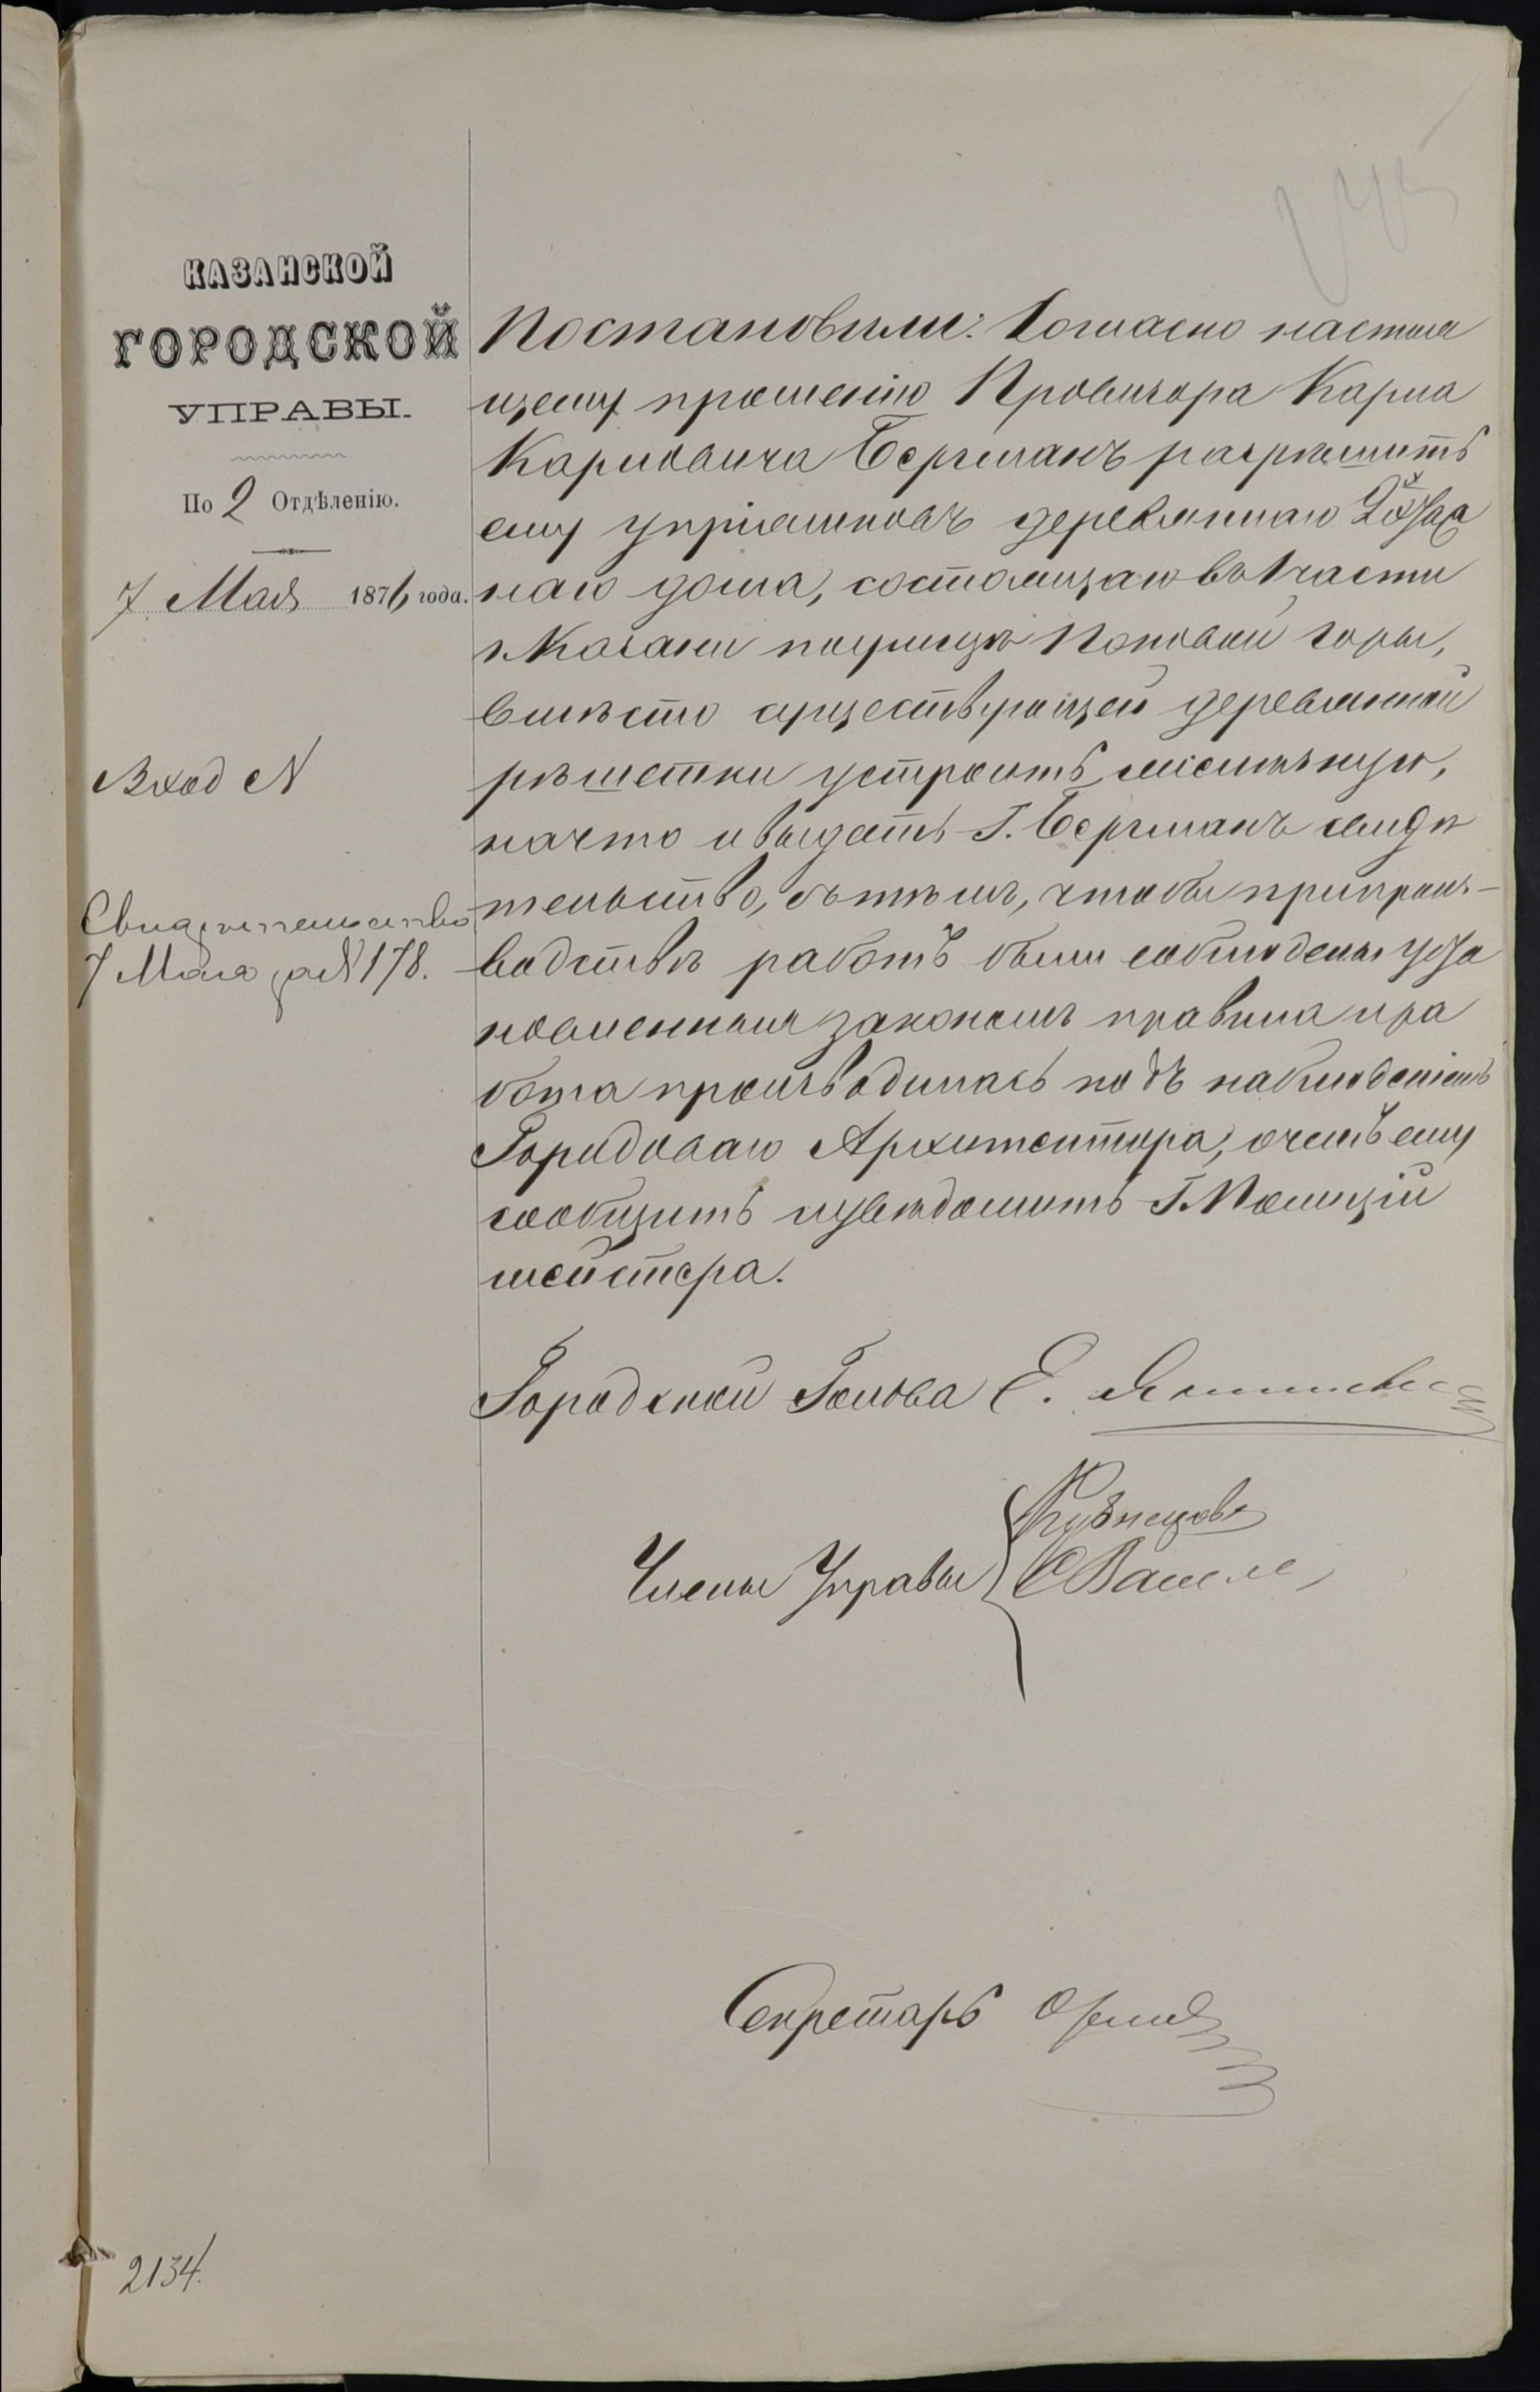 КАЗАНСКОЙ
ГОРОДСКОЙ
УПРАВЫ.
По 2 Отдѣленію.
7 Мая 1876 года.
Вход N
Свидѣтельство
7 Мая за N 178.
Постановили: Согласно настоя
щему прошенію Провизора Карла
Карловича Бергманъ разрѣшить
ему у принадлежащаго деревяннаго 2х этаж
наго дома, состоящаго въ 1 части
г. Казани по улицѣ Поповой горы,
вмѣсто существующей деревянной
рѣшетки устроить желѣзную,
на что и выдать Г. Бергманъ свидѣ
тельство, съ тѣмъ, чтобы при произ-
водствѣ работъ были соблюдены уста
новленныя закономъ правила и ра
бота производилась подъ наблюденіемъ
Городоваго Архитектора, о чемъ ему
сообщить и увѣдомить Г. Полицій
мейстера.
Городской Голова Е.
Члены Управы
Кузнецовъ
Секретарь
2134.